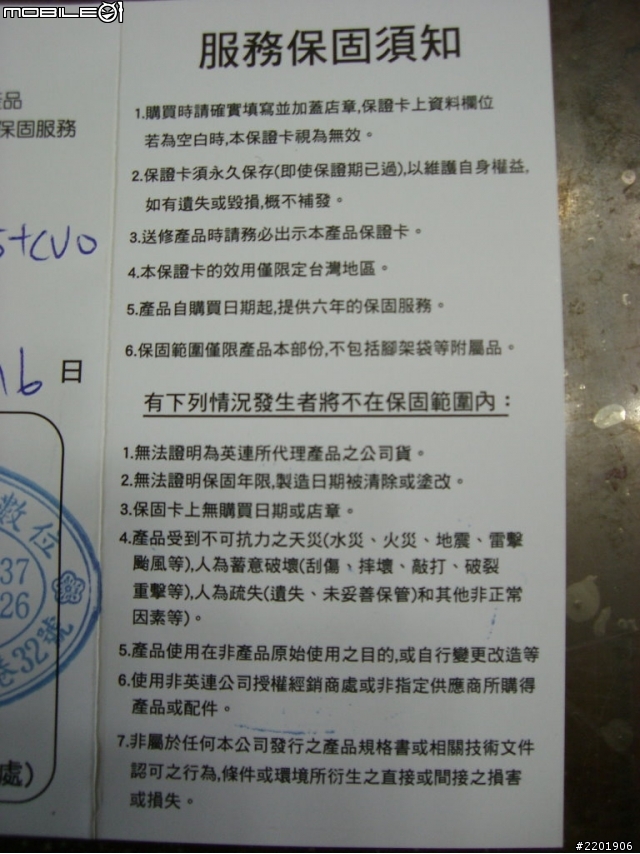 MOBILE01
服務保固須知
產品
保固服務
1.購買時請確實填寫並加蓋店章,保證卡上資料欄位
若為空白時,本保證卡視為無效。
2.保證卡須永久保存(即使保證期已過),以維護自身權益,
如有遺失或毀損,概不補發。
3.送修產品時請務必出示本產品保證卡。
4.本保證卡的效用僅限定台灣地區。
5.產品自購買日期起,提供六年的保固服務。
6.保固範圍僅限產品本部份,不包括腳架袋等附屬品。
5+CVO
16 日
有下列情況發生者將不在保固範圍內:
1.無法證明為英連所代理產品之公司貨。
2.無法證明保固年限,製造日期被清除或塗改。
3.保固卡上無購買日期或店章。
4.產品受到不可抗力之天災(水災、火災、地震、雷擊
颱風等),人為蓄意破壞(刮傷、摔壞、敲打、破裂
重擊等),人為疏失(遺失、未妥善保管)和其他非正常
因素等)。
5.產品使用在非產品原始使用之目的,或自行變更改造等
6.使用非英連公司授權經銷商處或非指定供應商所購得
產品或配件。
7.非屬於任何本公司發行之產品規格書或相關技術文件
認可之行為,條件或環境所衍生之直接或間接之損害
或損失。
數位
37
26
巷32號
處)
#2201906